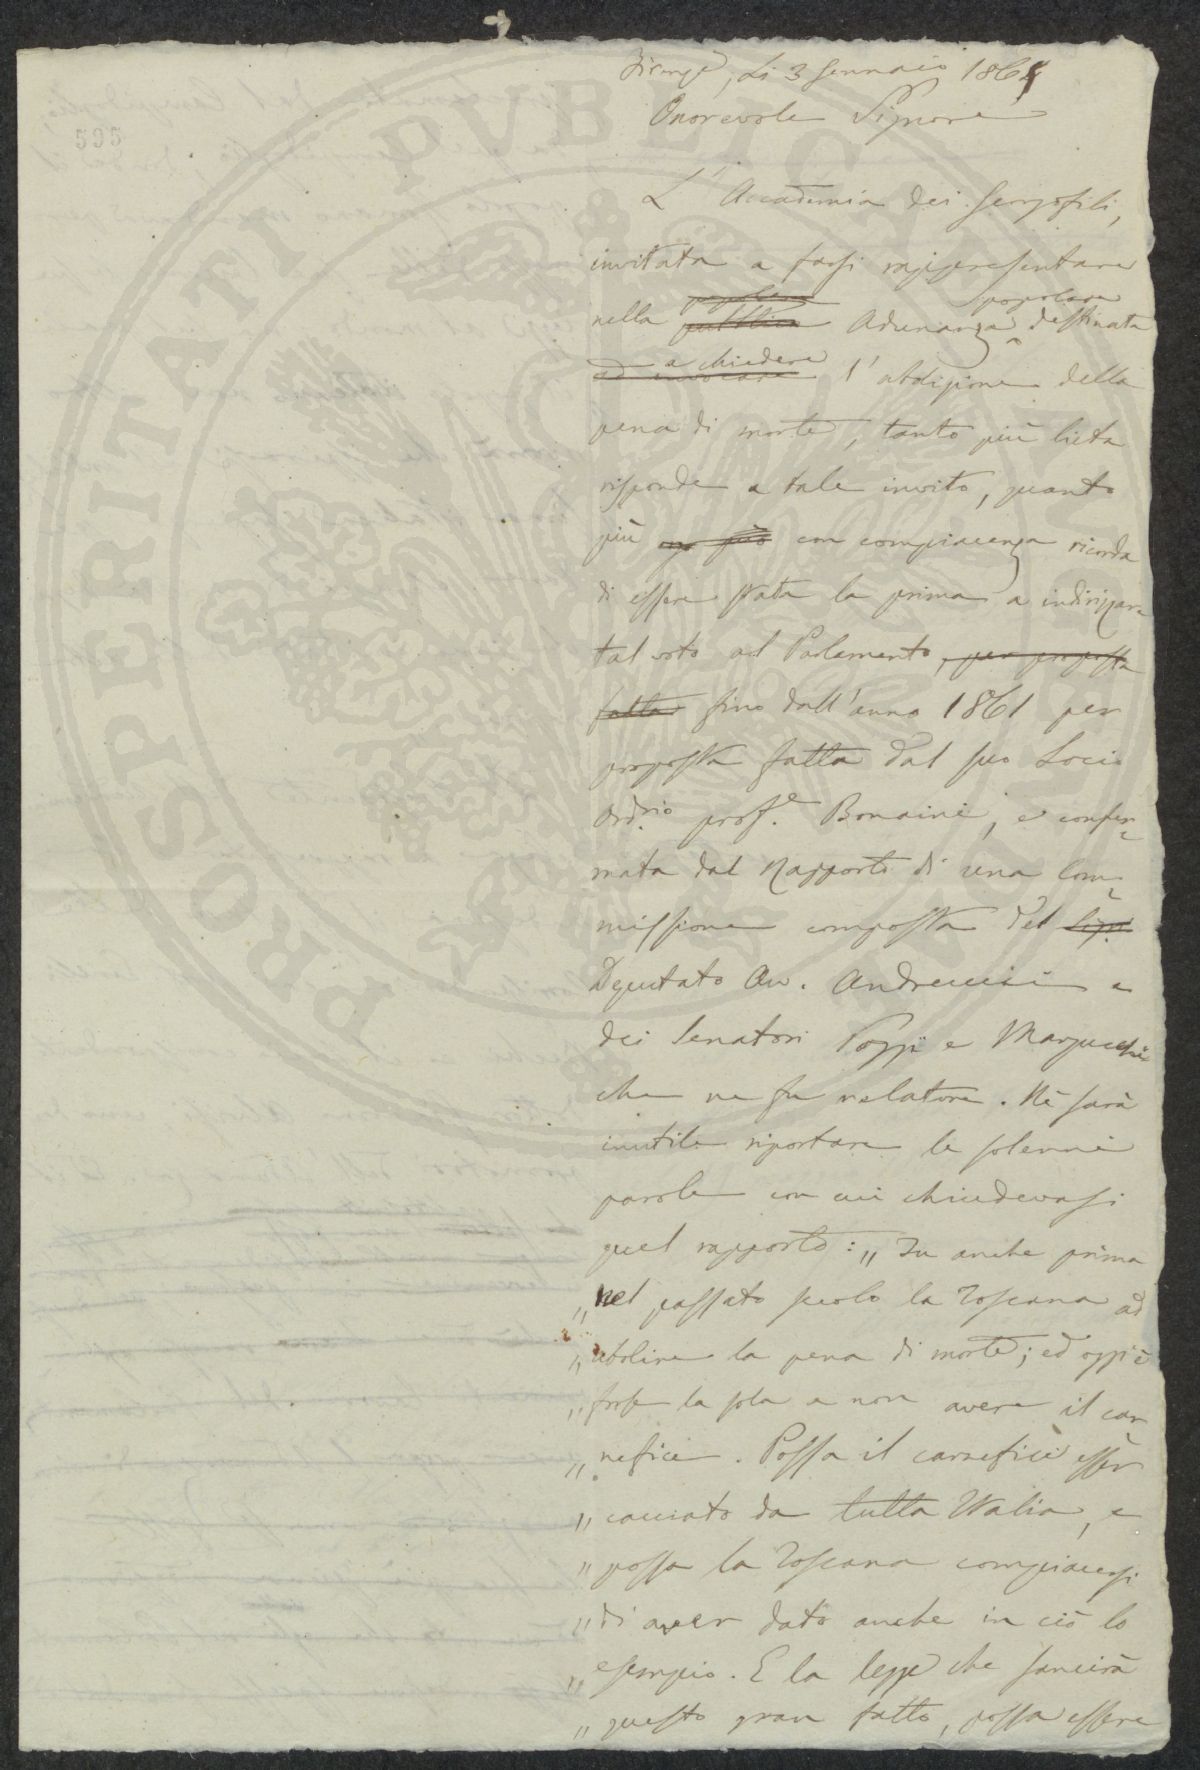 595
Firenze, Li 3 Gennaio 186
Onorevole Signore
L'Accademia dei Georgofili,
invitata a farsi rappresentare
popolare
nella pubblica Adunanza destinata
popolare
a chiedere
ad invocare l'abolizione della
pena di morte, tanto più lieta
risponde a tale invito, quanto
più con compiacenza ricorda
di essere stata la prima a indirizzare
tal voto al Parlamento, per proposta
fatta fino dall'anno 1861 per
proposta fatta dal suo Socio
Ord.rio prof.e Bonaini, e confer=
mata dal Rapporto di una Com=
missione composta del Sig.
Deputato Av. Andreucci e
dei Senatori Poggi e Marzucchi
che ne fu relatore. Nè sarà
inutile riportare le solenni
parole con cui chiudevasi
quel rapporto: „ Fu anche prima
„ nel passato secolo la Toscana ad
„ abolire la pena di morte; ed oggi è
„ forse la sola a non avere il car=
„ nefice. Possa il carnefice esser
„ cacciato da tutta Italia, e
„ possa la Toscana compiacersi
„ di aver dato anche in ciò lo
„ esempio. E la legge che sancirà
„ questo gran fatto, possa essere
PROSPERITATI PVBLICAE AVGENDAE